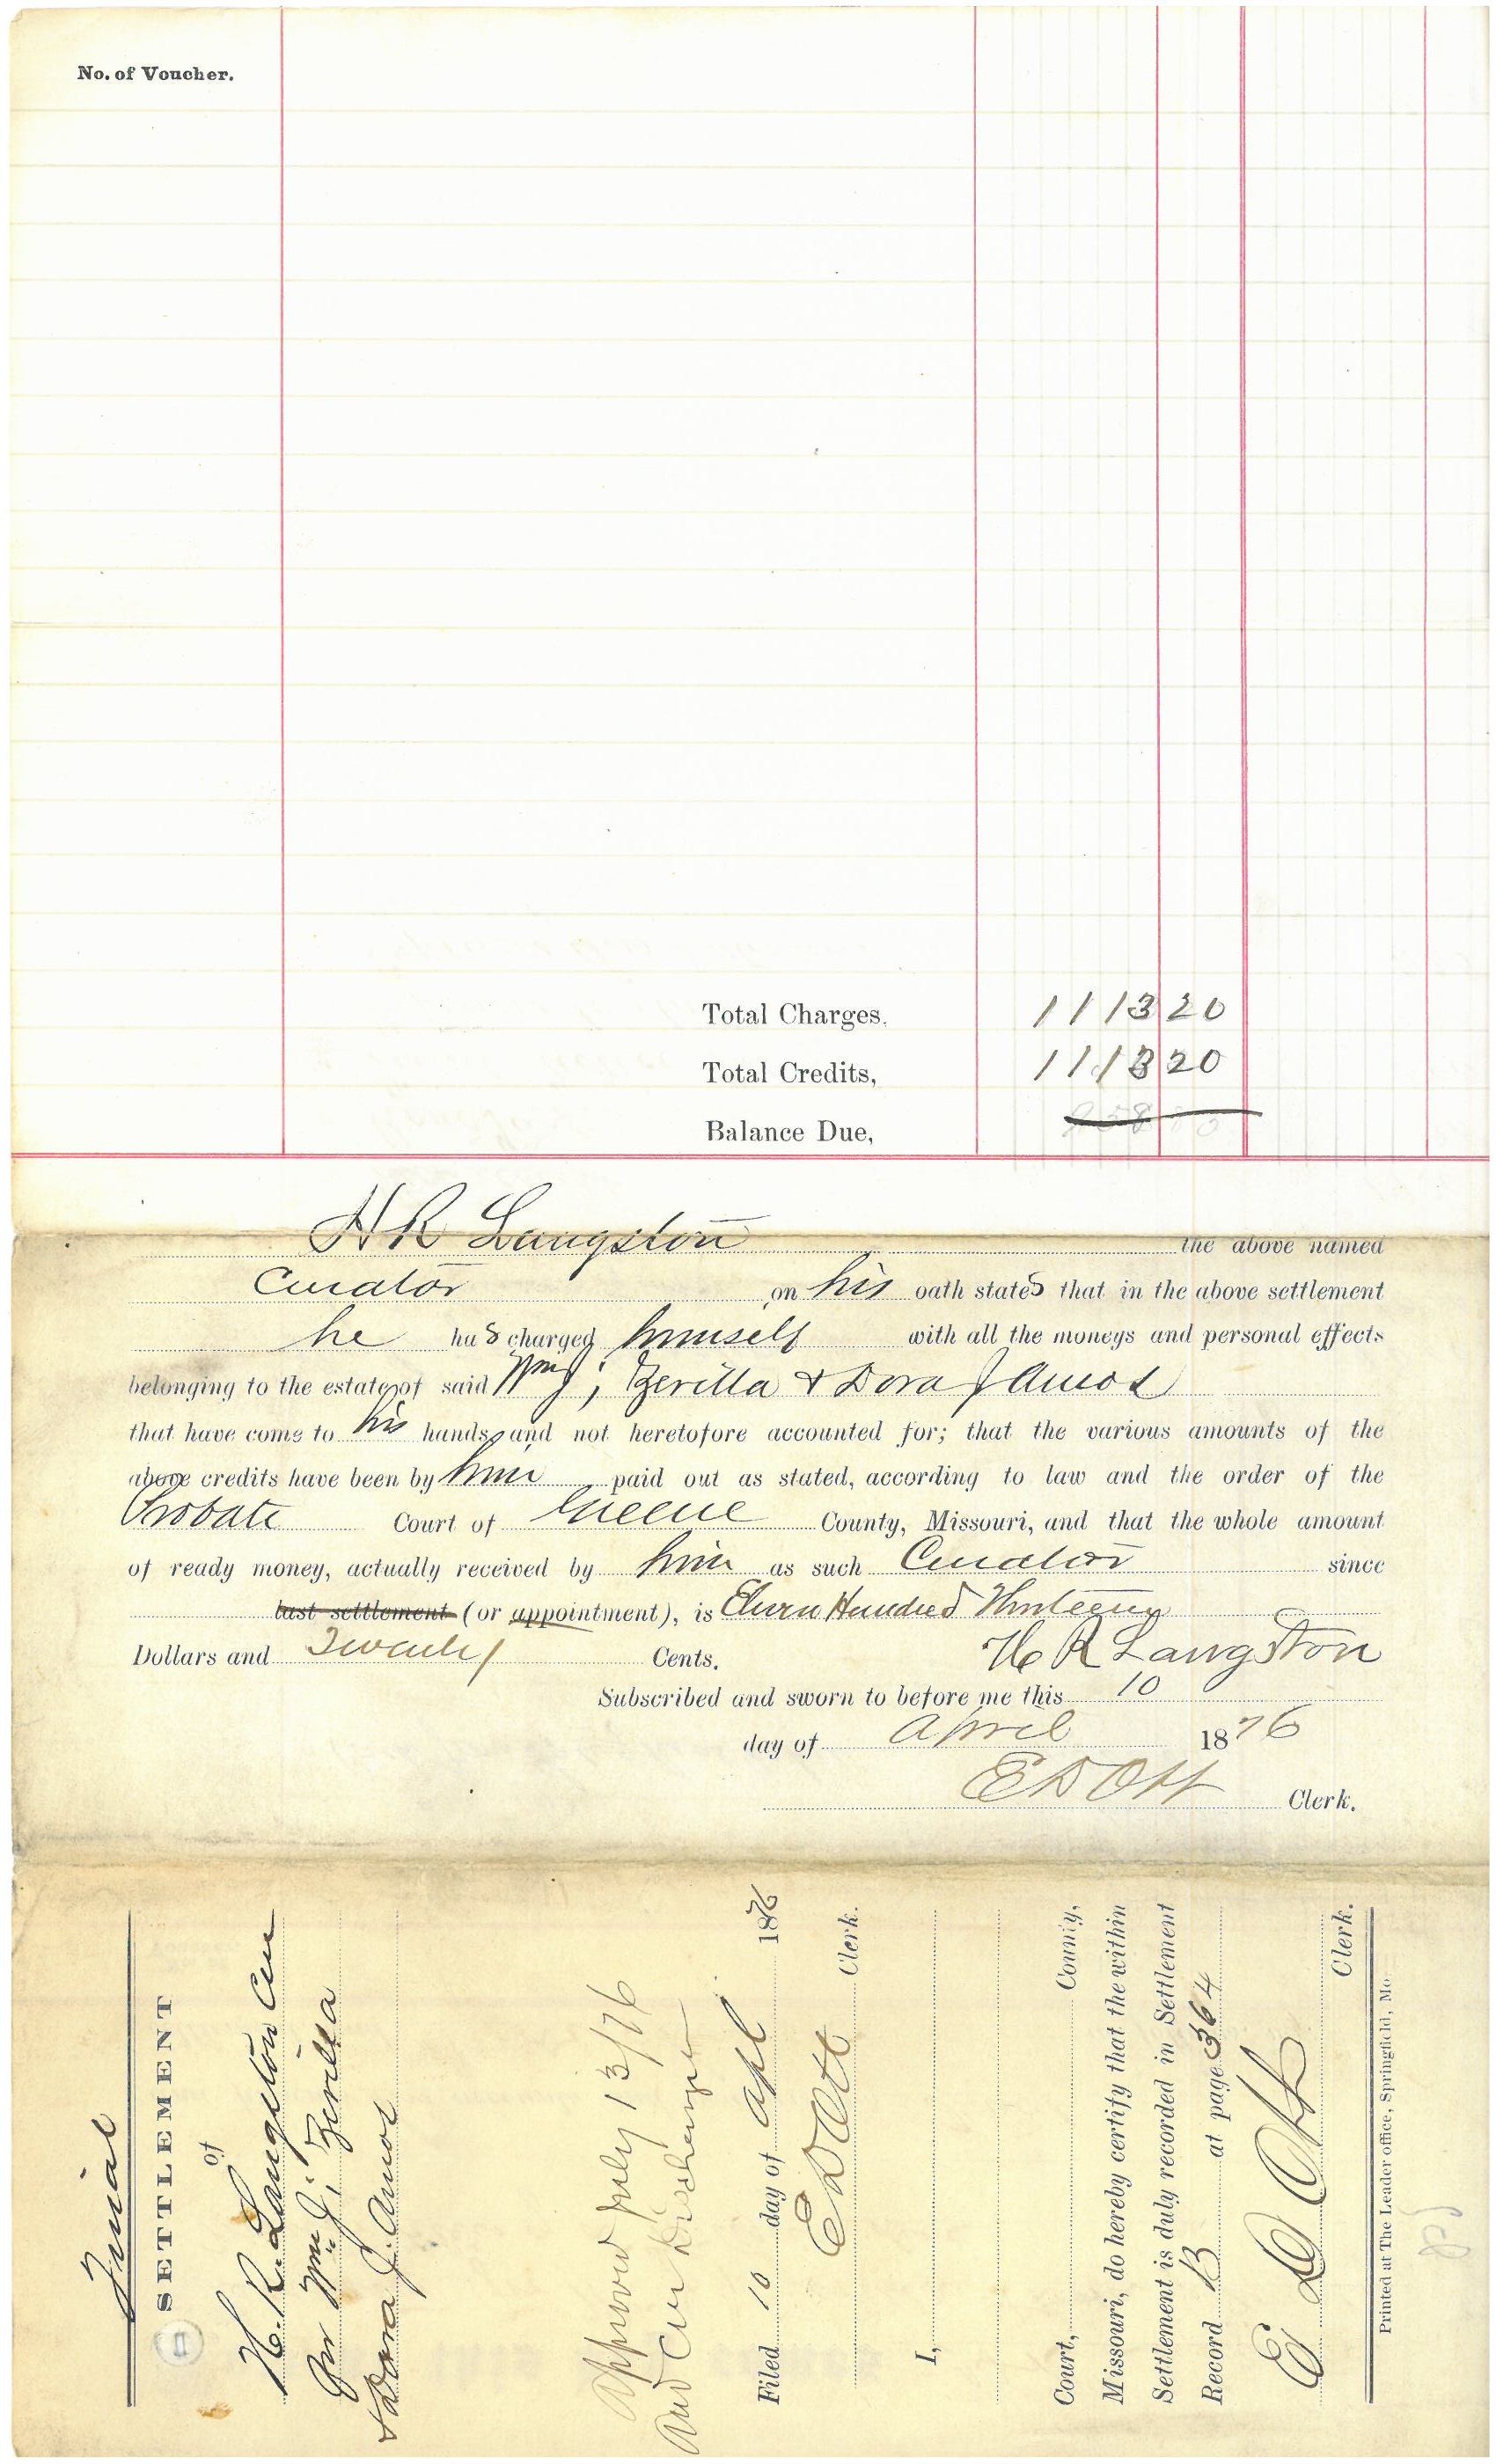 No. of Voucher.
Total Charges, 1113 20
Total Credits, 1113 20
Balance Due,
H R Langston the above named
Curator on his oath states that in the above settlement
he has charged himself with all the moneys and personal effects
belonging to the estate of said Wm J; Zerilla & Dora J Amos
that have come to his hands, and not heretofore accounted for; that the various amounts of the
above credits have been by him paid out as stated, according to law and the order of the
Probate Court of Greene County, Missouri, and that the whole amount
of ready money, actually received by him as such Curator since
last settlement (or appointment), is Eleven Hundred Thirteen
Dollars and Twenty Cents. H R Langston
Subscribed and sworn to before me this 10
day of April 1876
E D Ott Clerk.
Final
SETTLEMENT
of
H. R. Langston Cur
Wm J; Zerilla
& Dora J. Amos
Approved July 13/76
And Cur Discharged
Filed 10 day of Apl 1876
E D Ott Clerk.
I,
Court, County,
Missouri, do hereby certify that the within
Settlement is duly recorded in Settlement
Record B at page 364
E D Ott
Clerk.
Printed at The Leader office, Springfield, Mo